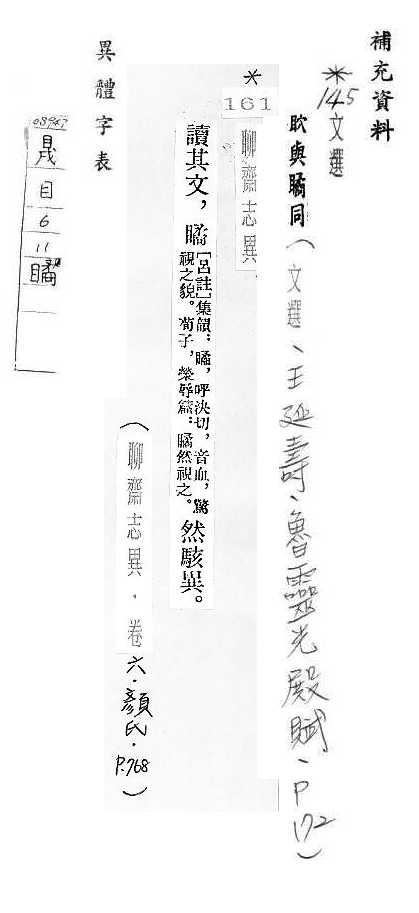 補充資料
＊145文選
欥與瞲同（文選、王延壽、魯靈光殿賦、P172）
＊
161
聊齋志異
讀其文，瞲[呂註]集韻：瞲，呼決切，音血，驚視之貌。荀子，榮辱篇：瞲然視之。然駭異。
（聊齋志異．卷六．顏氏．P.768）
異體字表
目
6
11
瞲